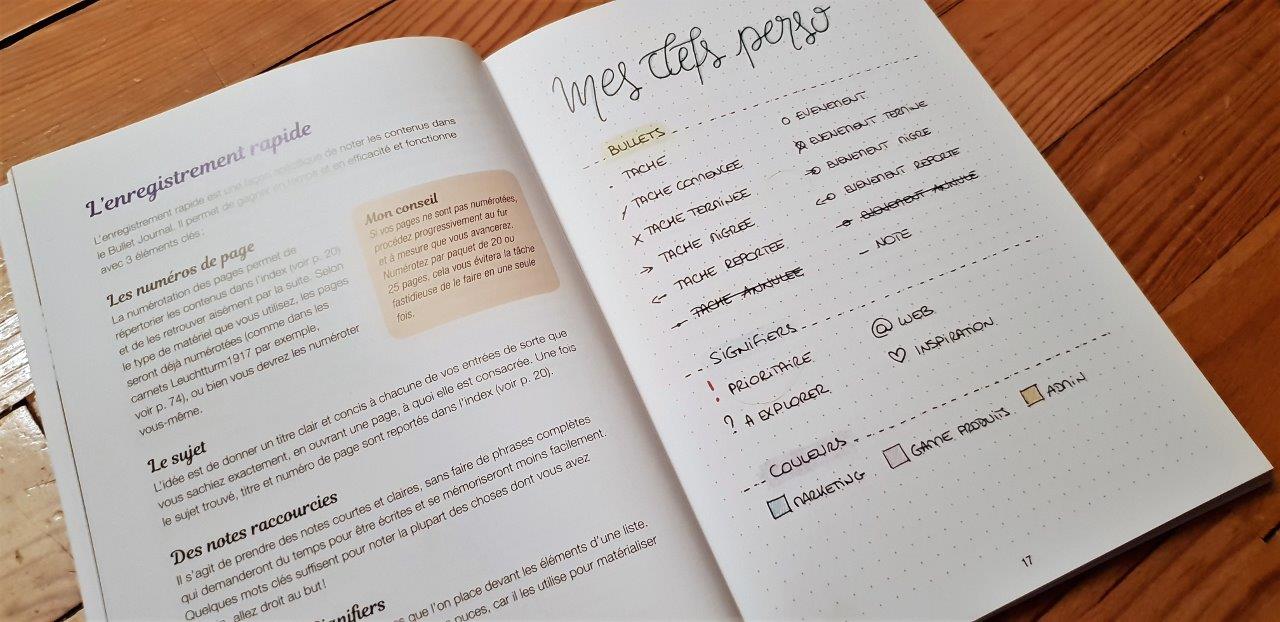 L'enregistrement rapide
L'enregistrement rapide est une façon spécifique de noter les contenus dans
le Bullet Journal. Il permet de gagner en temps et en efficacité et fonctionne
avec 3 éléments clés :
Les numéros de page
La numérotation des pages permet de
répertorier les contenus dans l'index (voir p. 20)
et de les retrouver aisément par la suite. Selon
le type de matériel que vous utilisez, les pages
seront déjà numérotées (comme dans les
carnets Leuchtturm1917 par exemple,
voir p. 74), ou bien vous devrez les numéroter
vous-même.
Mon conseil
Si vos pages ne sont pas numérotées,
procédez progressivement au fur
et à mesure que vous avancerez.
Numérotez par paquet de 20 ou
25 pages, cela vous évitera la tâche
fastidieuse de le faire en une seule
fois.
Le sujet
L'idée est de donner un titre clair et concis à chacune de vos entrées de sorte que
vous sachiez exactement, en ouvrant une page, à quoi elle est consacrée. Une fois
le sujet trouvé, titre et numéro de page sont reportés dans l'index (voir p. 20).
Des notes raccourcies
Il s'agit de prendre des notes courtes et claires, sans faire de phrases complètes
qui demanderont du temps pour être écrites et se mémoriseront moins facilement.
Quelques mots clés suffisent pour noter la plupart des choses dont vous avez
allez droit au but !
que l'on place devant les éléments d'une liste.
puces, car il les utilise pour matérialiser
Mes clefs perso
BULLETS
• TACHE
/ TACHE COMMENCEE
X TACHE TERMINEE
> TACHE MIGREE
< TACHE REPORTEE
TACHE ANNULEE
O EVENEMENT
EVENEMENT TERMINE
EVENEMENT MIGRE
EVENEMENT REPORTE
EVENEMENT ANNULE
– NOTE
SIGNIFIERS
! PRIORITAIRE
? A EXPLORER
@ WEB
♡ INSPIRATION
COULEURS
MARKETING
GAMME PRODUITS
ADMIN
17